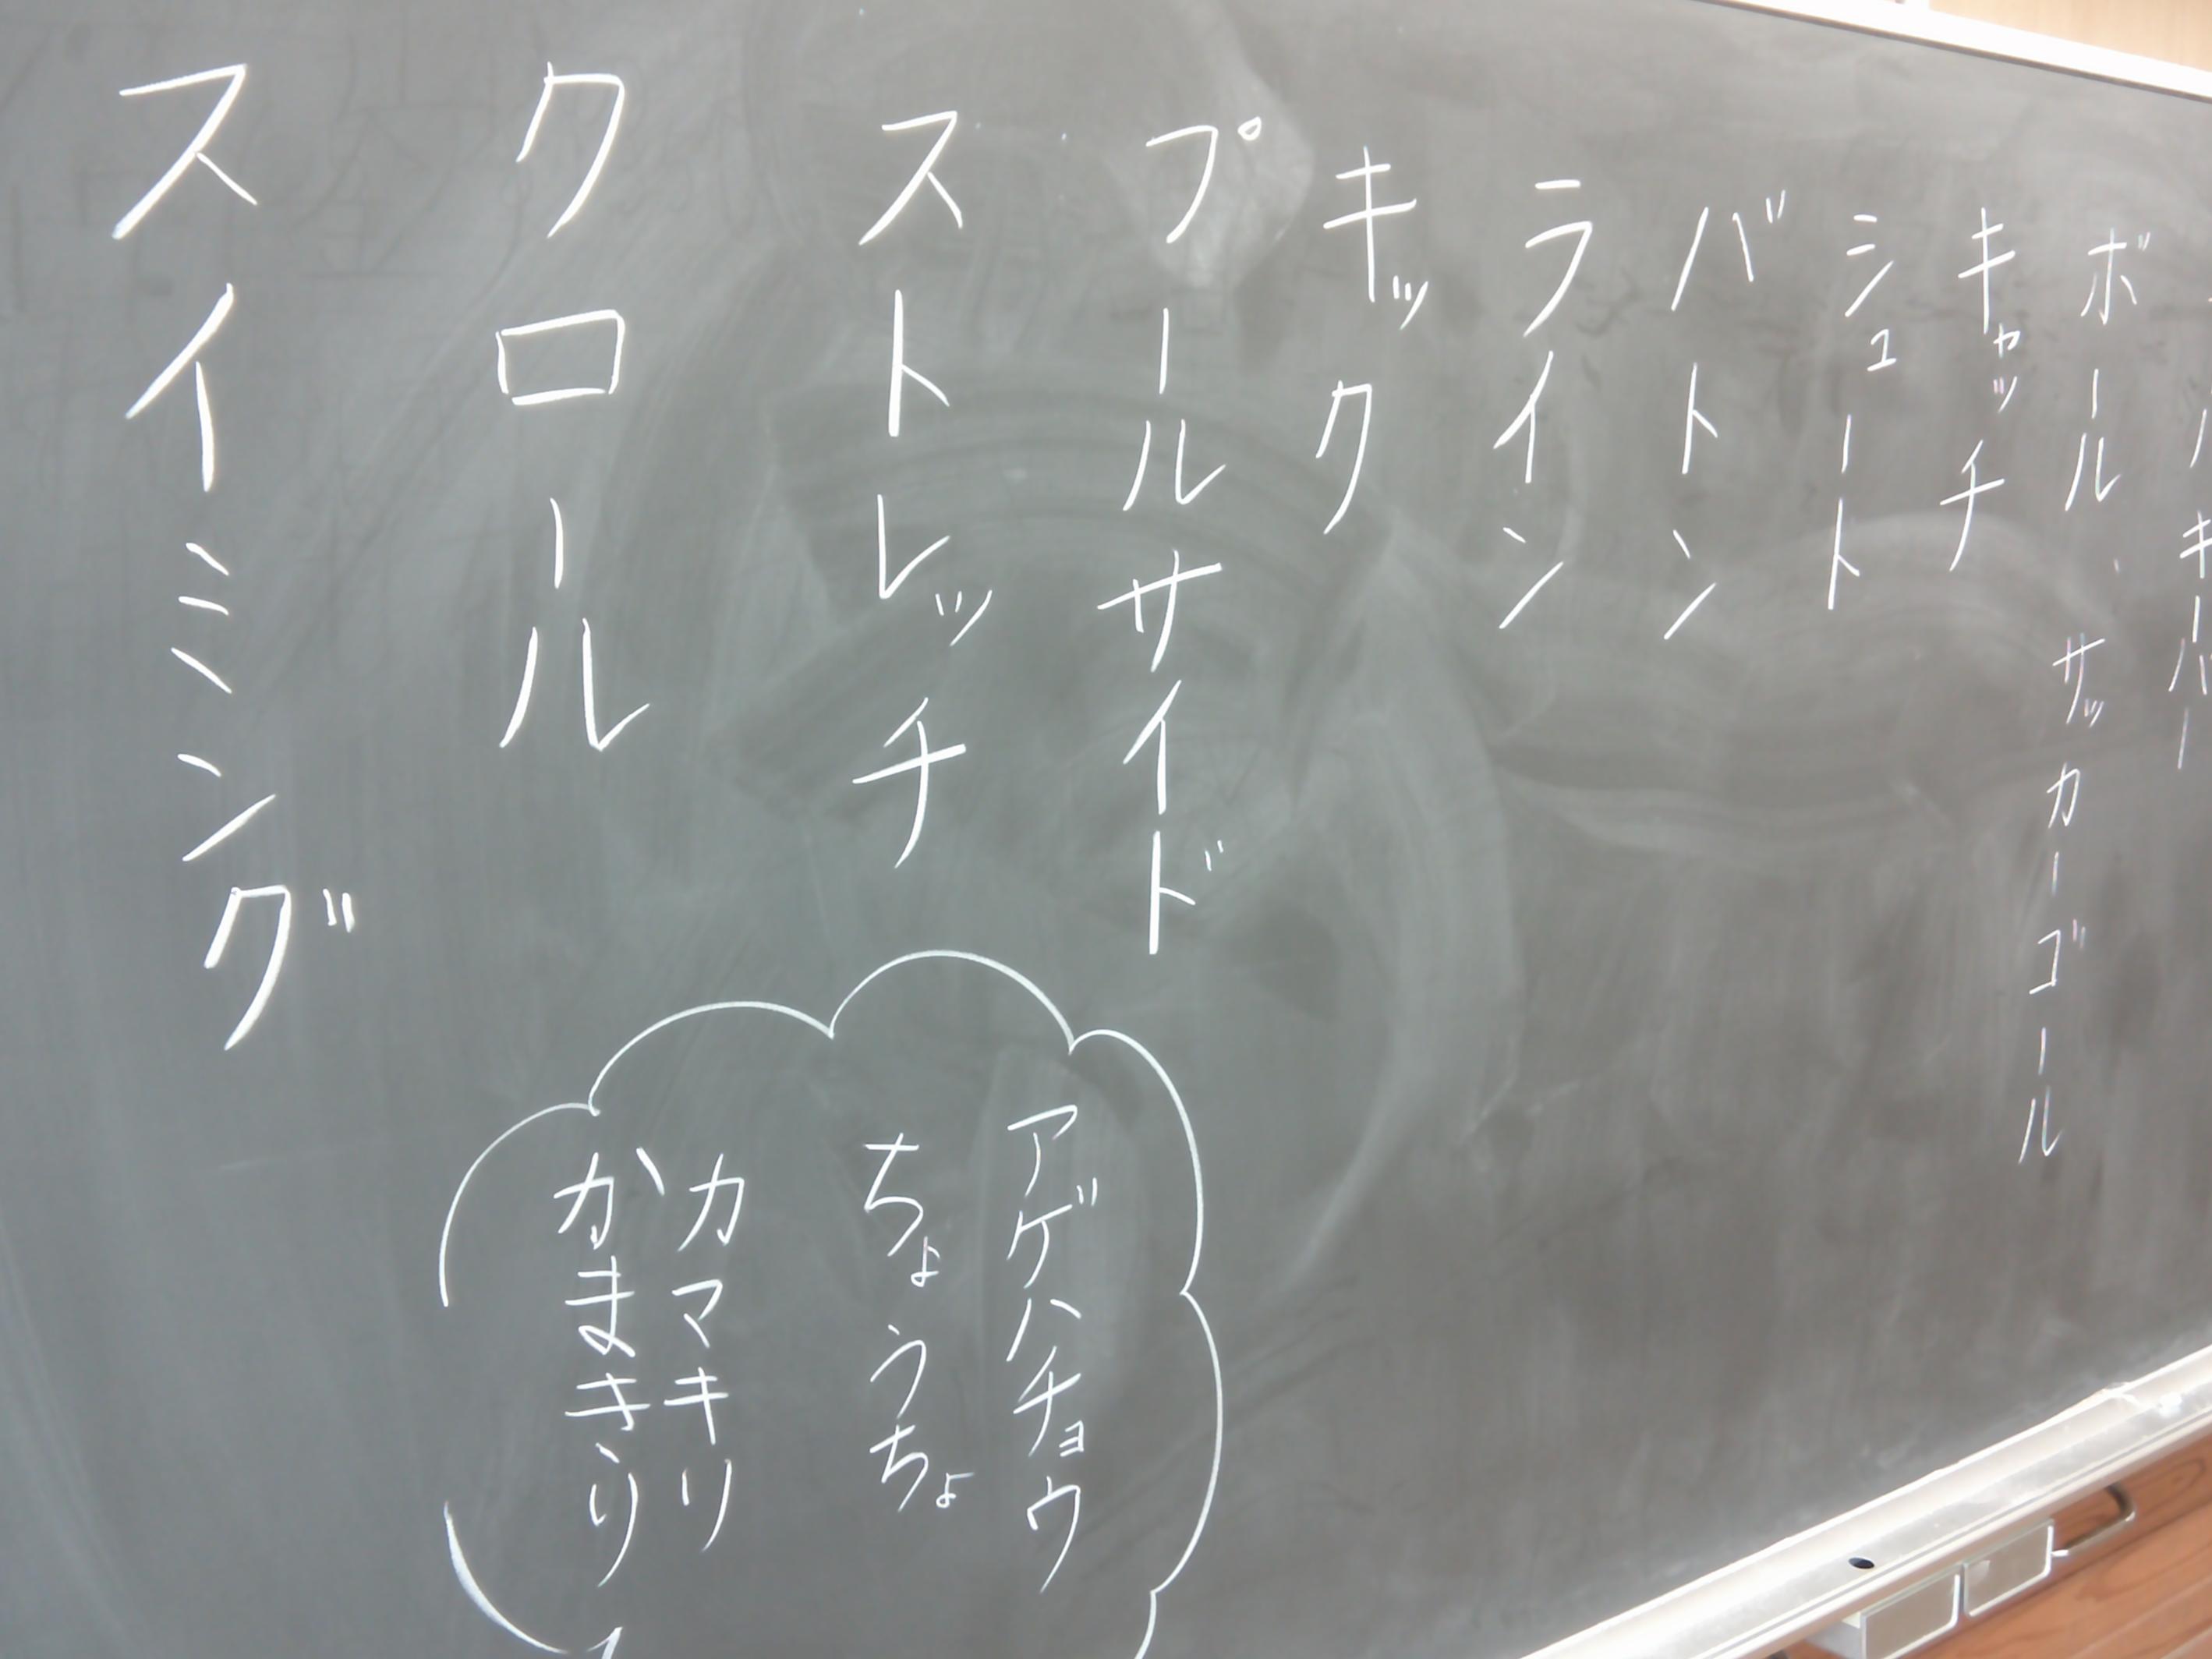 ボール サッカーゴール
キャッチ
シュート
バトン
ライン
キック
プールサイド
ストレッチ
クロール
スイミング
アゲハチョウ
ちょうちょ
カマキリ
かまきり